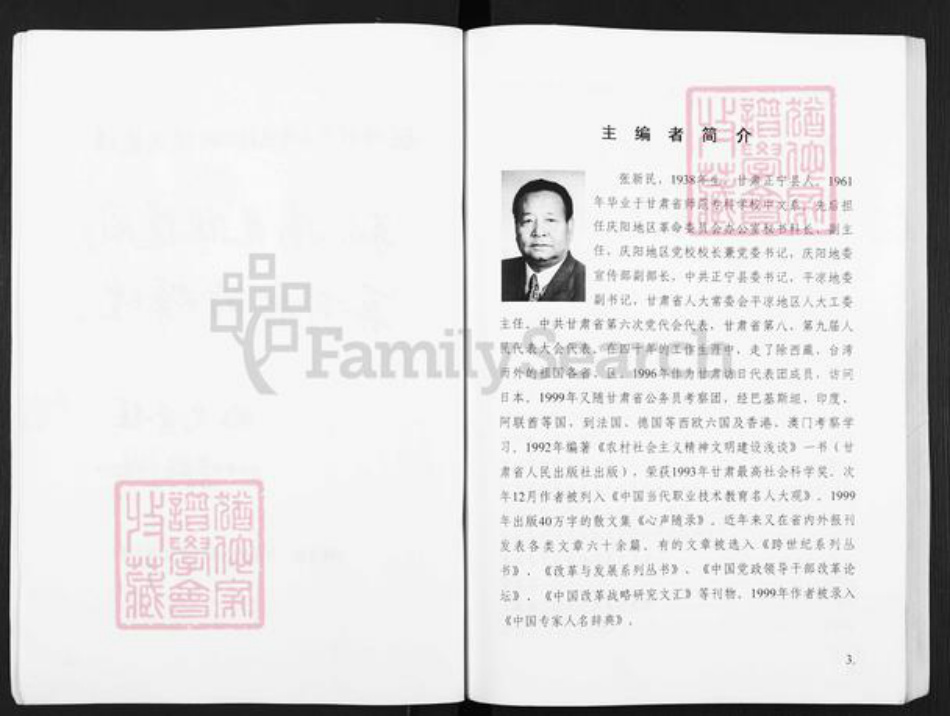 主编者简介
张新民，1938年生，甘肃正宁县人。1961
年毕业于甘肃省师范专科学校中文系，先后担
任庆阳地区革命委员会办公室秘书科长、副主
任、庆阳地区党校校长兼党委书记，庆阳地委
宣传部副部长、中共正宁县委书记，平凉地委
副书记，甘肃省人大常委会平凉地区人大工委
主任。中共甘肃省第六次党代会代表，甘肃省第八、第九届人
民代表大会代表。在四十年的工作生涯中，走了除西藏、台湾
而外的祖国各省、区。1996年作为甘肃访日代表团成员，访问
日本。1999年又随甘肃省公务员考察团，经巴基斯坦、印度、
阿联酋等国，到法国、德国等西欧六国及香港、澳门考察学
习。1992年编著《农村社会主义精神文明建设浅谈》一书（甘
肃省人民出版社出版），荣获1993年甘肃最高社会科学奖。次
年12月作者被列入《中国当代职业技术教育名人大观》。1999
年出版40万字的散文集《心声随录》。近年来又在省内外报刊
发表各类文章六十余篇。有的文章被选入《跨世纪系列丛
书》、《改革与发展系列丛书》、《中国党政领导干部改革论
坛》、《中国改革战略研究文汇》等刊物。1999年作者被录入
《中国专家人名辞典》。
3.
FamilySearch